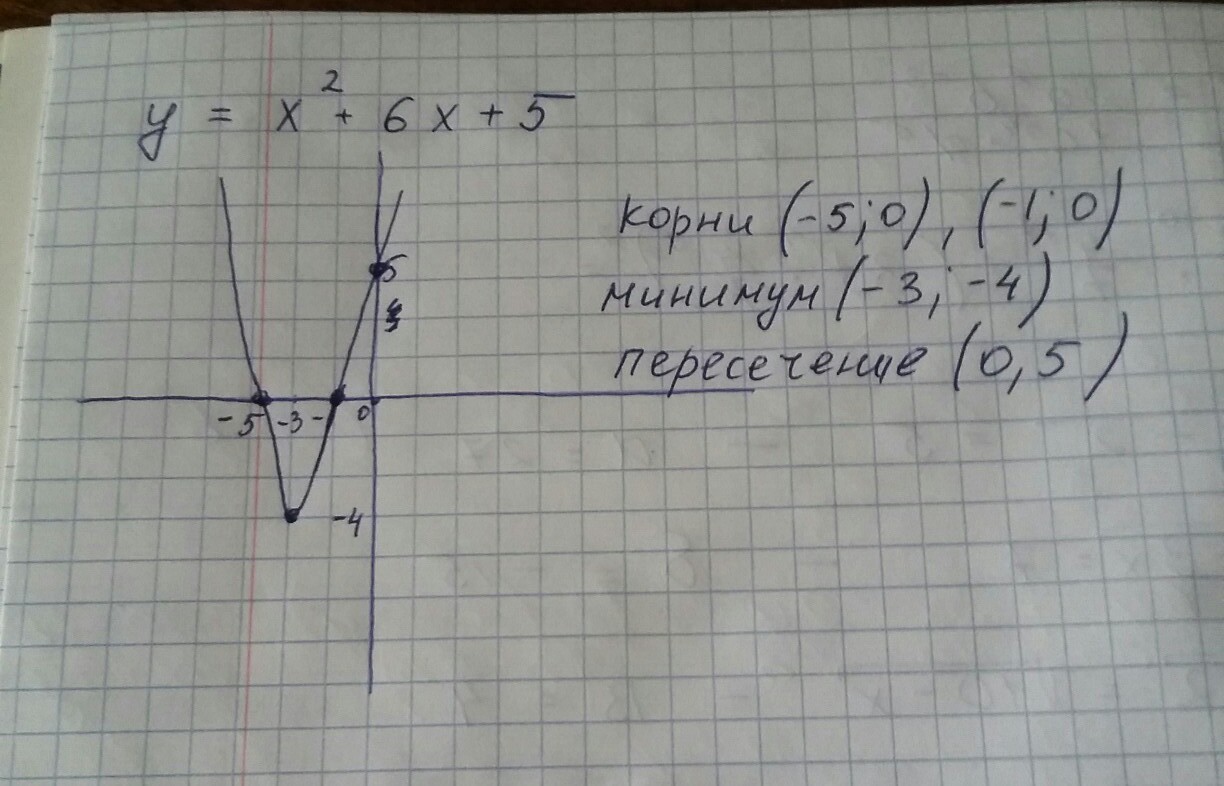 y = x² + 6x + 5
корни (-5; 0), (-1; 0)
минимум (-3; -4)
пересечение (0, 5)
5
-5 -3 - 0
-4